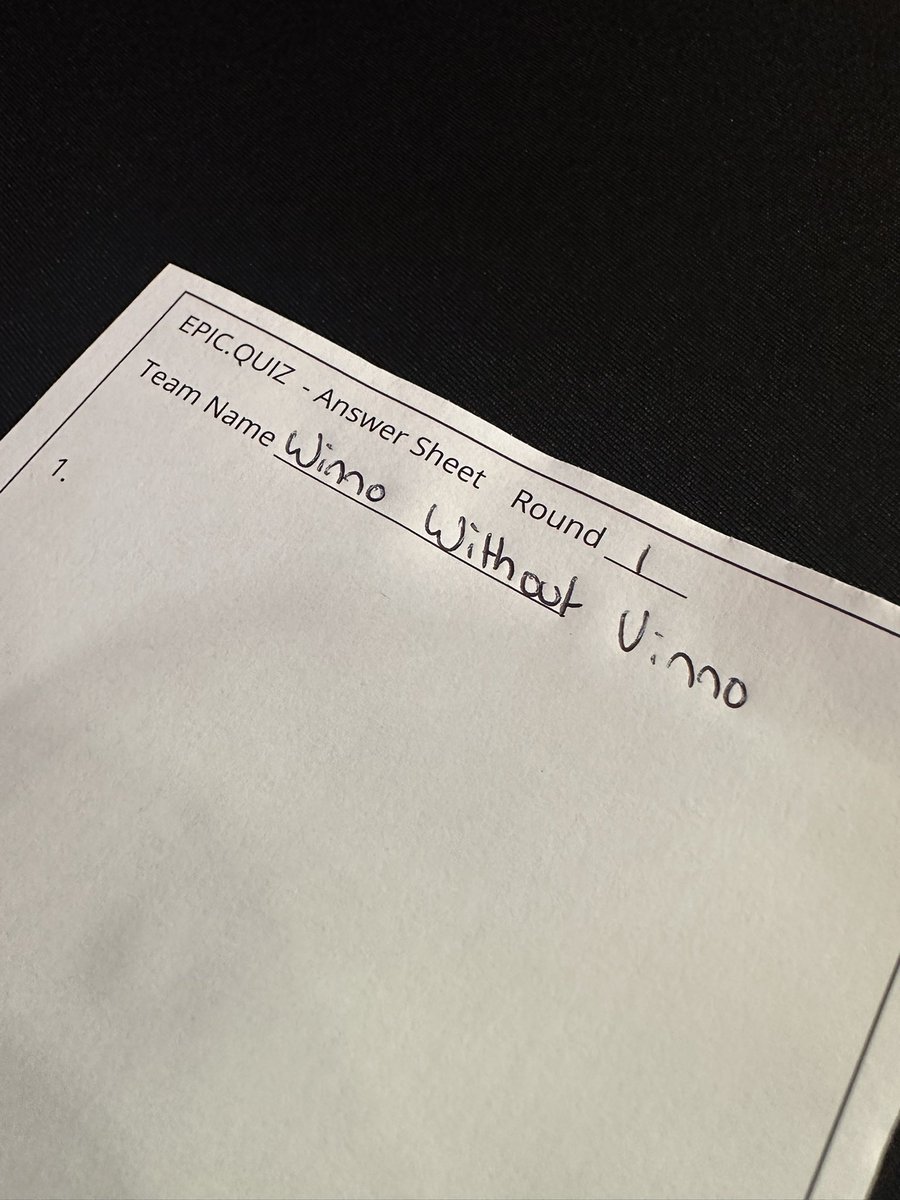 EPIC.QUIZ - Answer Sheet Round 1
Team Name Wimo Without Vimo
1.